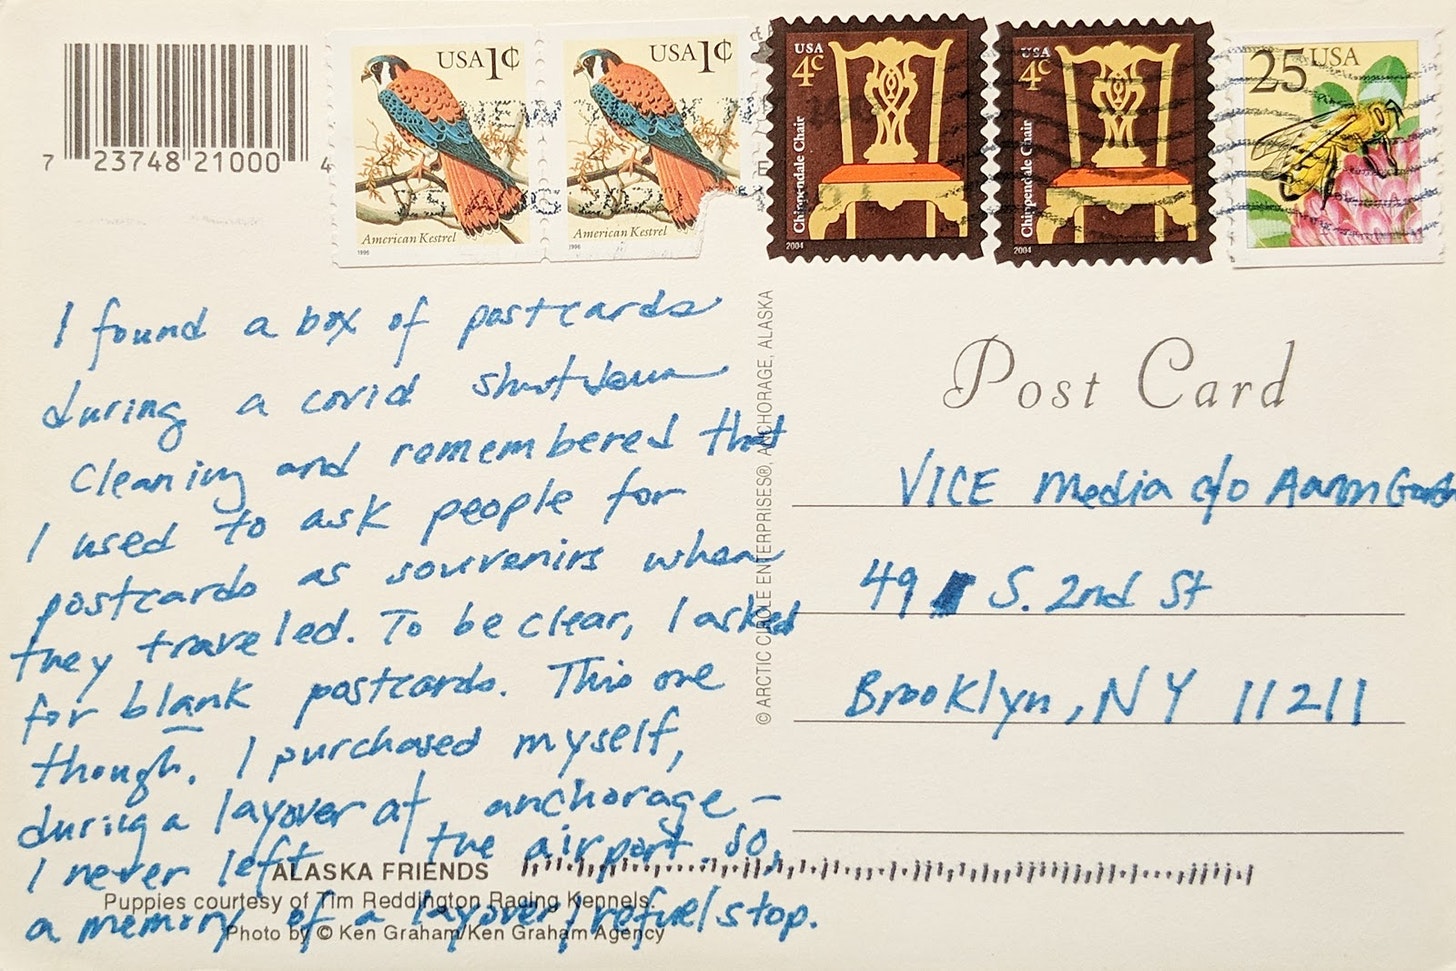 7 23748 21000 4
USA 1¢
American Kestrel
1996
USA 1¢
American Kestrel
1996
USA
4c
Chippendale Chair
2004
USA
4c
Chippendale Chair
2004
25 USA
NEW YORK NY
I found a box of postcards
during a covid shutdown
cleaning and remembered that
I used to ask people for
postcards as souvenirs when
they traveled. To be clear, I asked
for blank postcards. This one
though. I purchased myself,
during a layover at anchorage –
I never left the airport. So,
a memory of a layover/refuel stop.
ALASKA FRIENDS
Puppies courtesy of Tim Reddington Racing Kennels.
Photo by © Ken Graham/Ken Graham Agency
© ARCTIC CIRCLE ENTERPRISES®, ANCHORAGE, ALASKA
Post Card
VICE Media c/o Aaron
49 S. 2nd St
Brooklyn, NY 11211